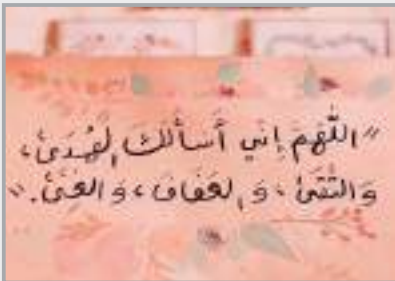 "اللَّهُمَّ إِنِّي أَسْأَلُكَ الْهُدَى،
وَالتُّقَى، وَالعَفَافَ، وَالغِنَى."